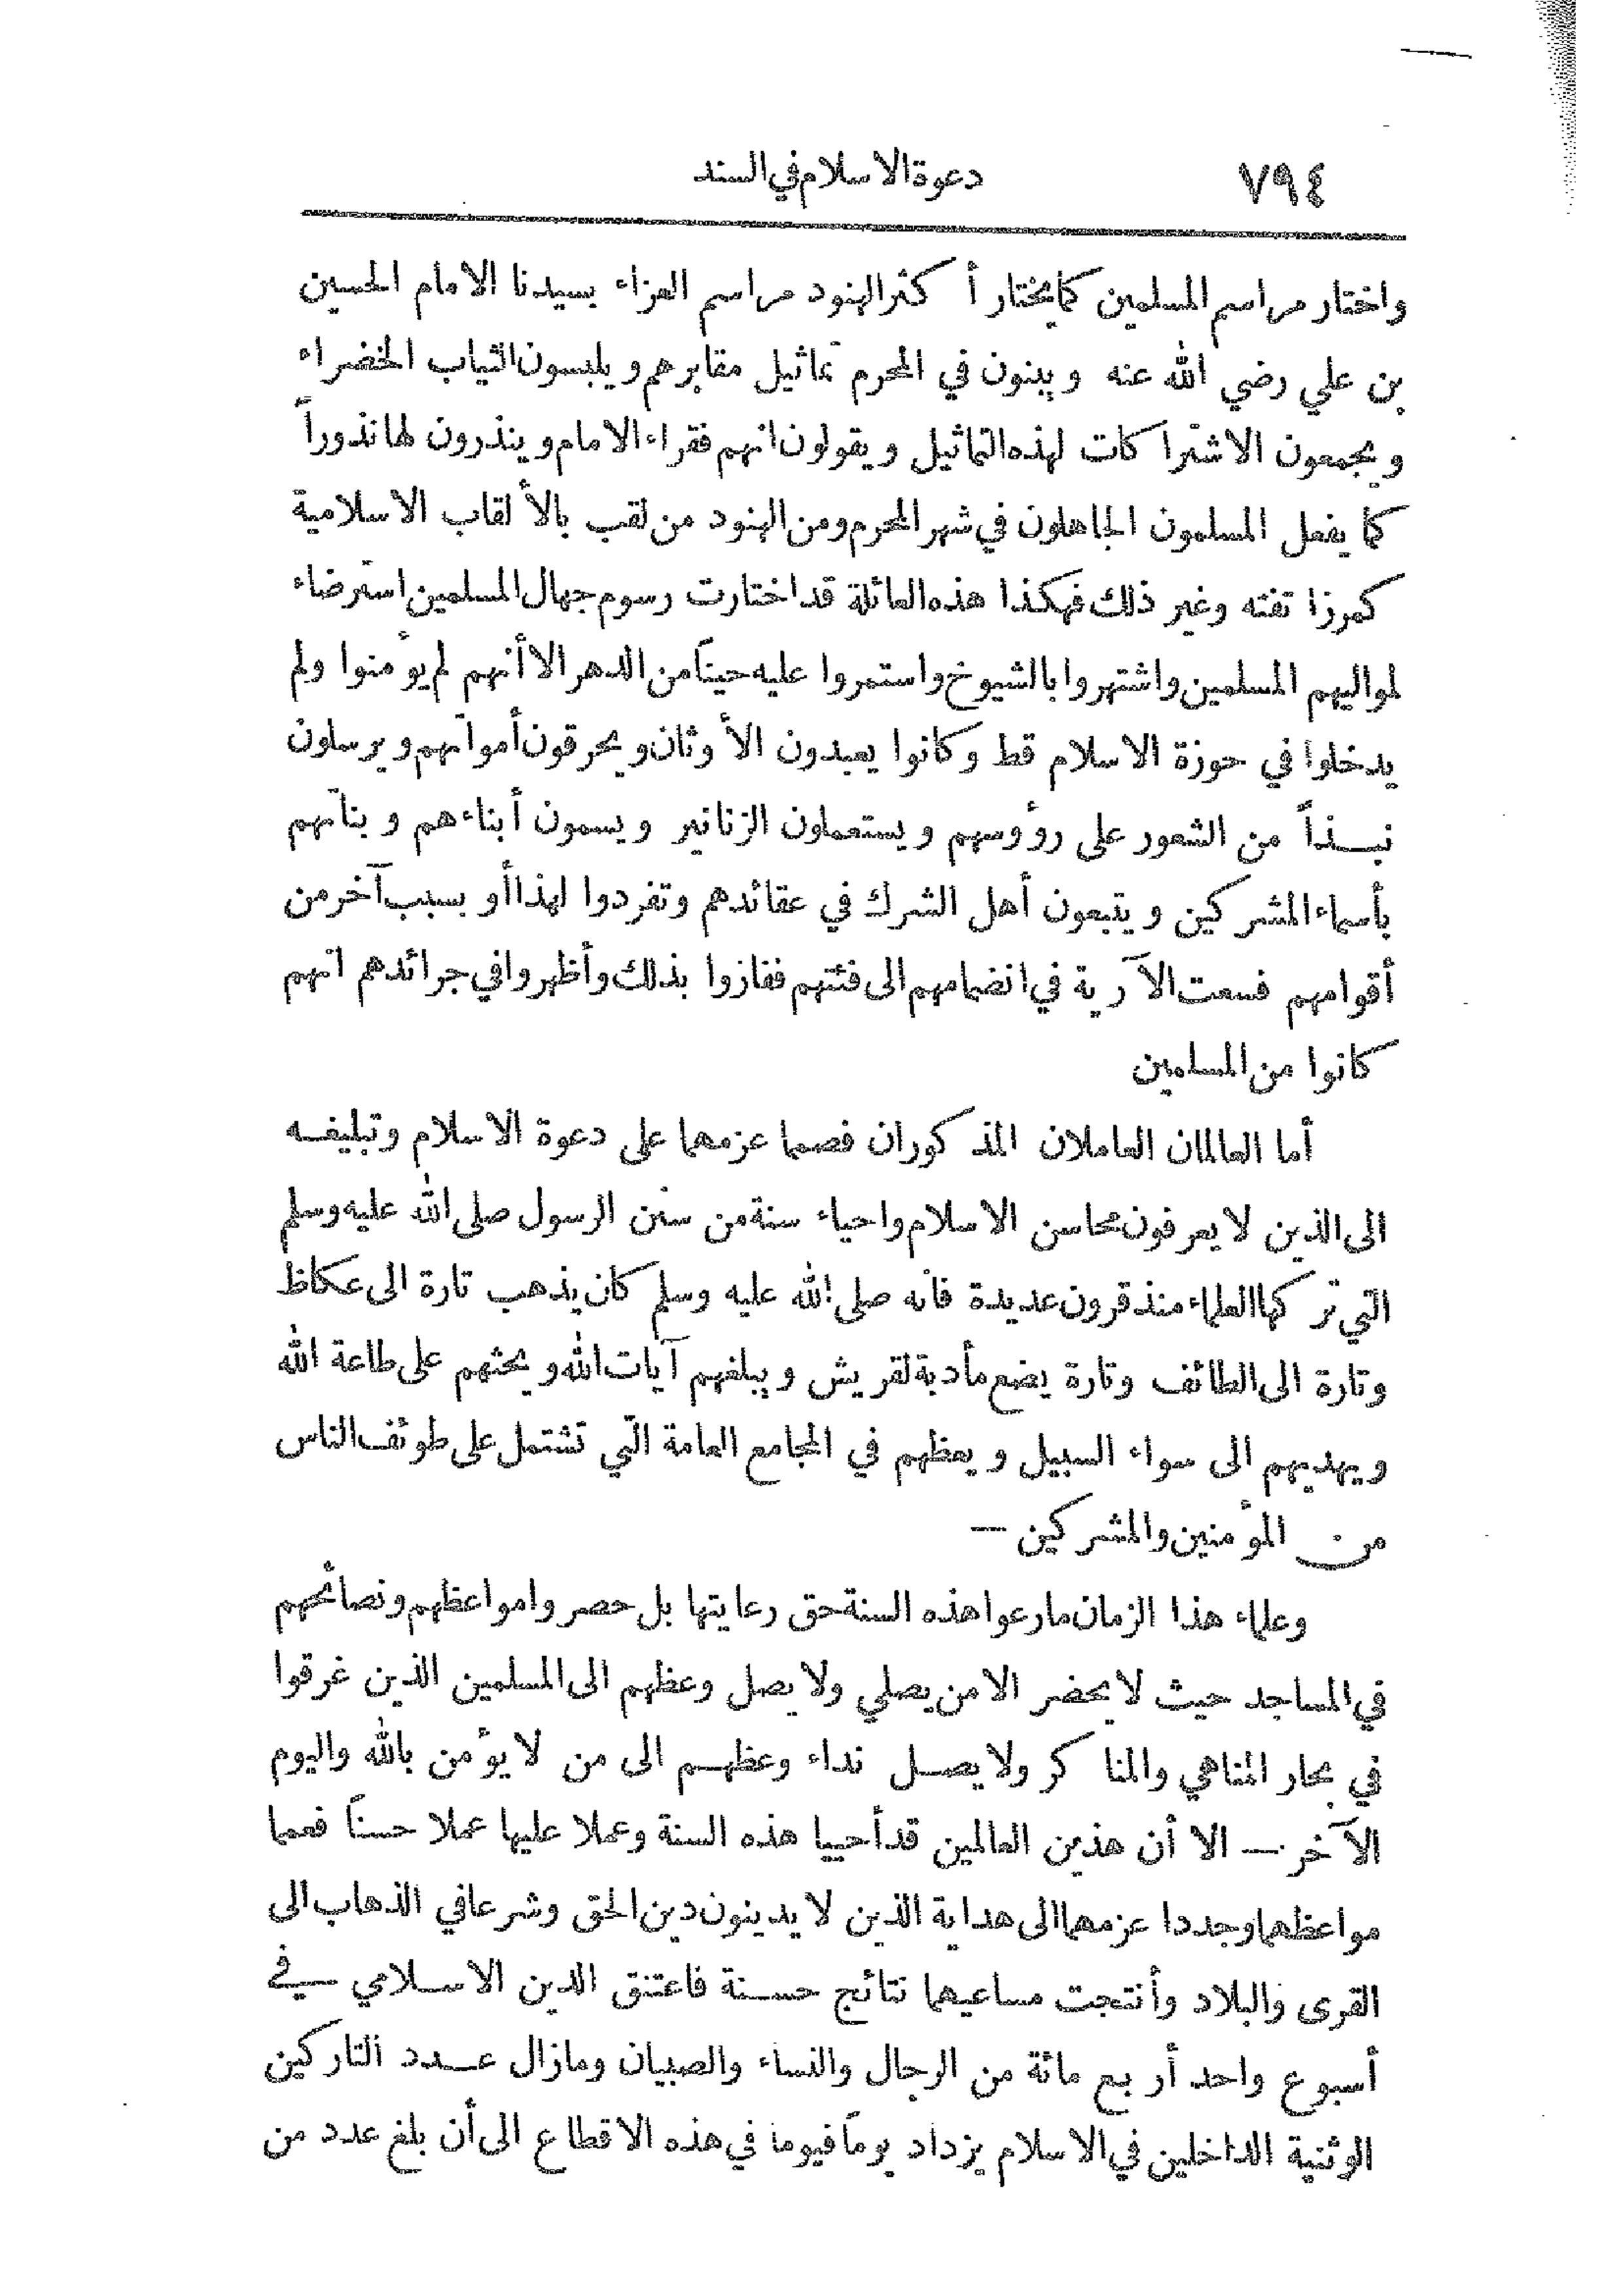 ٧٩٤ دعوة الاسلام في السند
واختار مراسم المسلمين كما يختار أكثر الهنود مراسم العزاء بسيدنا الامام الحسين
بن علي رضي الله عنه ويبنون في المحرم تماثيل مقابرهم ويلبسون الثياب الخضراء
ويجمعون الاشتراكات لهذه التماثيل ويقولون انهم فقراء الامام وينذرون لها نذوراً
كما يفعل المسلمون الجاهلون في شهر المحرم ومن الهنود من لقب بالألقاب الاسلامية
كمرزا تفته وغير ذلك فهكذا هذه العائلة قد اختارت رسوم جهال المسلمين استرضاء
لمواليهم المسلمين واشتهروا بالشيوخ واستمروا عليه حيناً من الدهر الا أنهم لم يؤمنوا ولم
يدخلوا في حوزة الاسلام قط وكانوا يعبدون الأوثان ويحرقون أمواتهم ويرسلون
نبـذاً من الشعور على رؤوسهم ويستعملون الزنانير ويسمون أبناءهم وبناتهم
بأسماء المشركين ويتبعون أهل الشرك في عقائدهم وتفردوا لهذا أو بسبب آخر من
أقوامهم فسعت الآرية في انضمامهم الى فئتهم ففازوا بذلك وأظهروا في جرائدهم انهم
كانوا من المسلمين
أما العالمان العاملان المذكوران فصمما عزمهما على دعوة الاسلام وتبليغـه
الى الذين لا يعرفون محاسن الاسلام واحياء سنة من سنن الرسول صلى الله عليه وسلم
التي تركها العلماء منذ قرون عديدة فانه صلى الله عليه وسلم كان يذهب تارة الى عكاظ
وتارة الى الطائف وتارة يضع مأدبة لقريش ويبلغهم آيات الله ويحثهم على طاعة الله
ويهديهم الى سواء السبيل ويعظهم في المجامع العامة التي تشتمل على طوئف الناس
من المؤمنين والمشركين —
وعلماء هذا الزمان ما رعوا هذه السنة حق رعايتها بل حصروا مواعظهم ونصائحهم
في المساجد حيث لا يحضر الا من يصلي ولا يصل وعظهم الى المسلمين الذين غرقوا
في بحار المناهي والمناكر ولا يصـل نداء وعظهـم الى من لا يؤمن بالله واليوم
الآخر — الا أن هذين العالمين قد أحييا هذه السنة وعملا عليها عملا حسناً فعمما
مواعظهما وجددا عزمهما الى هداية الذين لا يدينون دين الحق وشرعا في الذهاب الى
القرى والبلاد وأنتجت مساعيهما نتائج حسـنة فاعتنق الدين الاسـلامي في
أسبوع واحد أربع مائة من الرجال والنساء والصبيان ومازال عـدد التاركين
الوثنية الداخلين في الاسلام يزداد يوماً فيوما في هذه الاقطاع الى أن بلغ عدد من